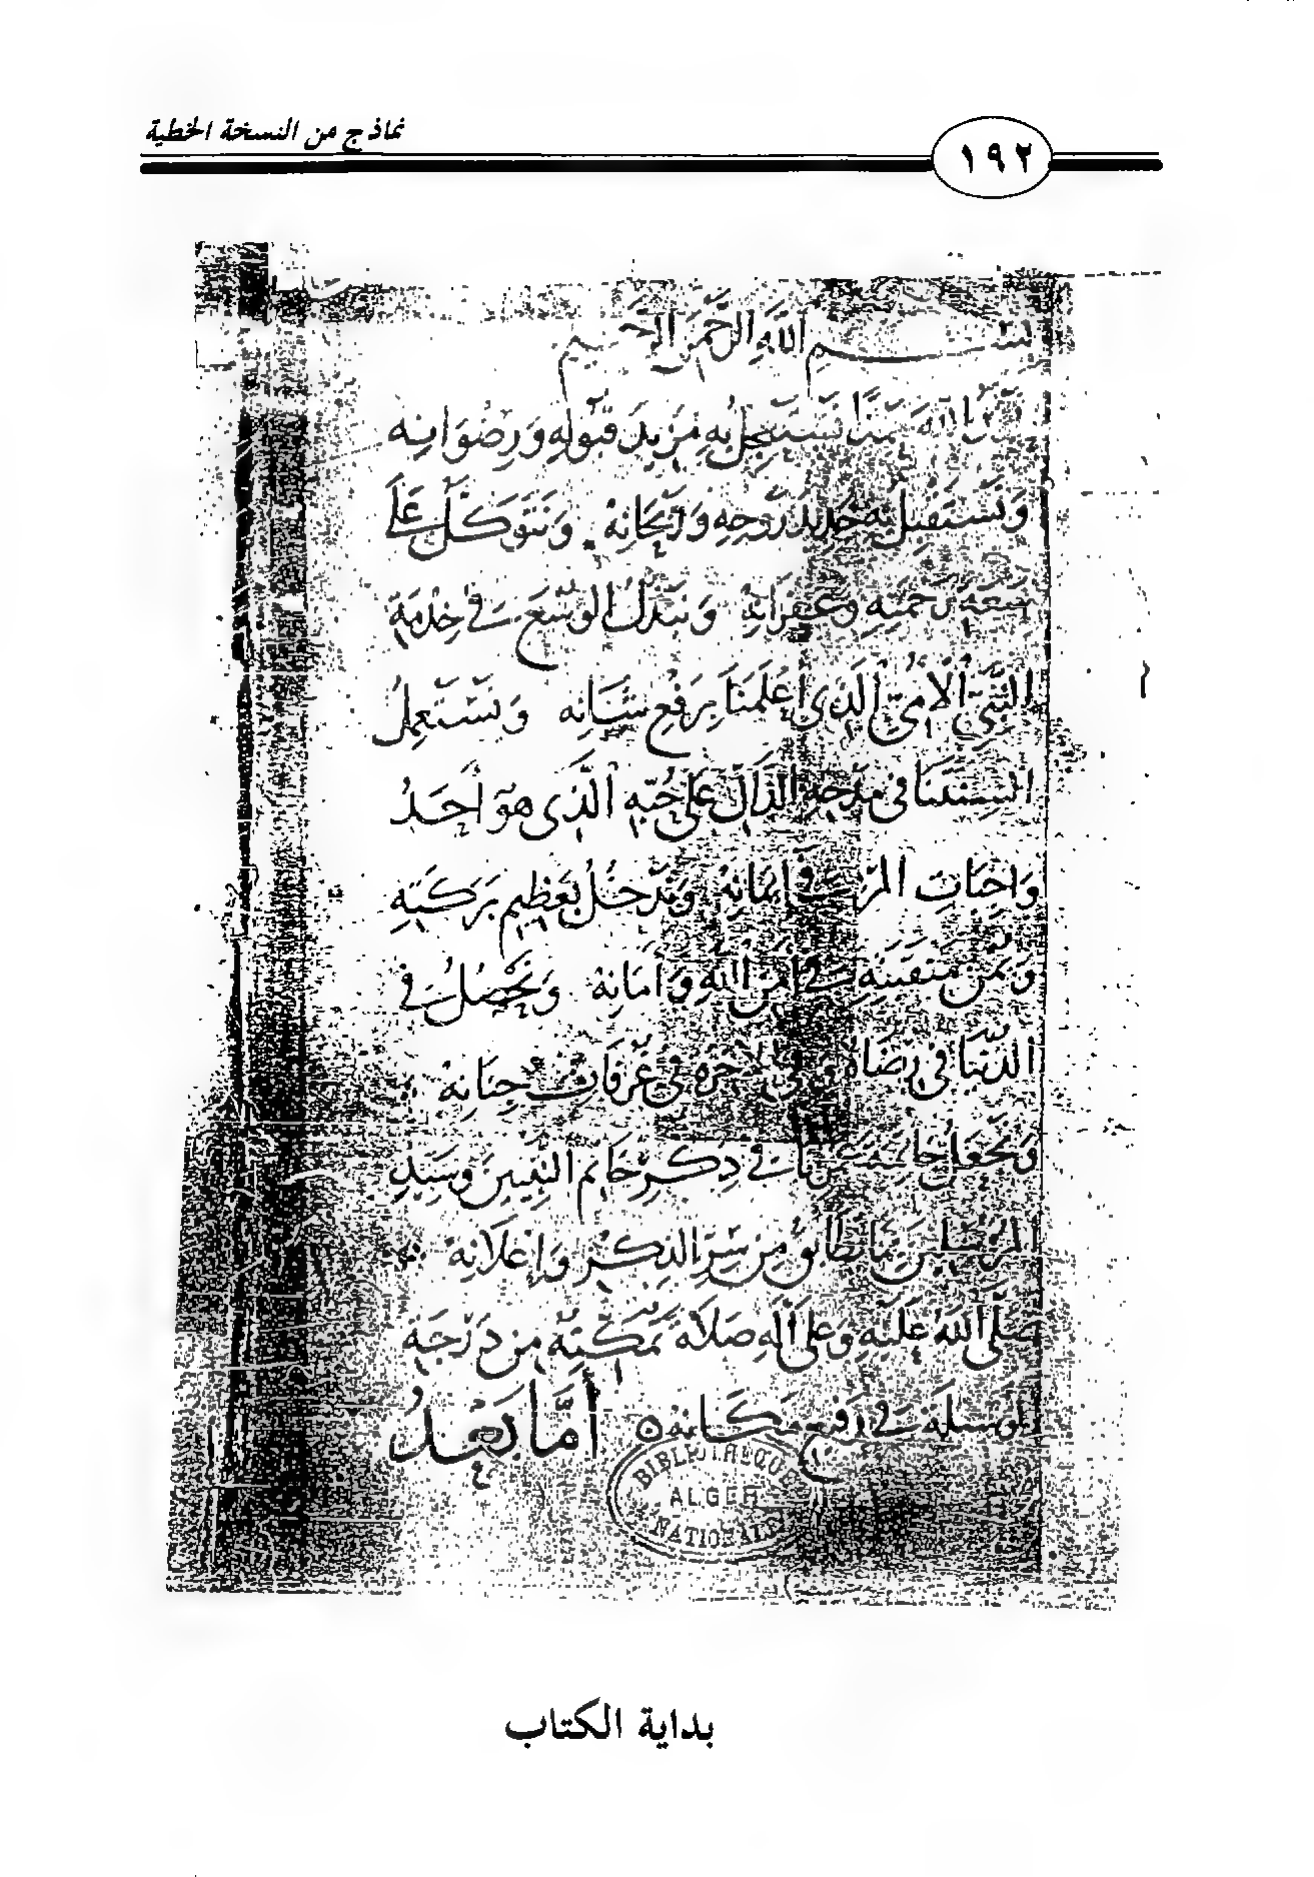 نماذج من النسخة الخطية
١٩٢
بسم الله الرحمن الرحيم
الله نستجلب به مزيد قبوله ورضوانه
ونستقبل به جديد روحه وريحانه ونتوكل على
سعة رحمته وغفرانه ونبذل الوسع في خدمة
النبي الأمي الذي أعلمنا برفع شانه ونستعمل
السنتنا في مدحه الدال على حبه الذي هو أحد
واجبات المرء في إيمانه وندخل بعظيم بركته
ويمن منقبته في أمن الله وأمانه ونحصل في
الدنيا في رضاه وفي الاخرة في غرفات جنانه
ونجعل في ذكر خاتم النبيين وسيد
المرسلين ما نطابق من سر الذكر وإعلانه
صلى الله عليه وعلى آله صلاة تمكنه من درجة
الوسيلة في رفيع مكانه ٥ أما بعد
BIBLIOTHEQUE
ALGER
NATIONALE
بداية الكتاب